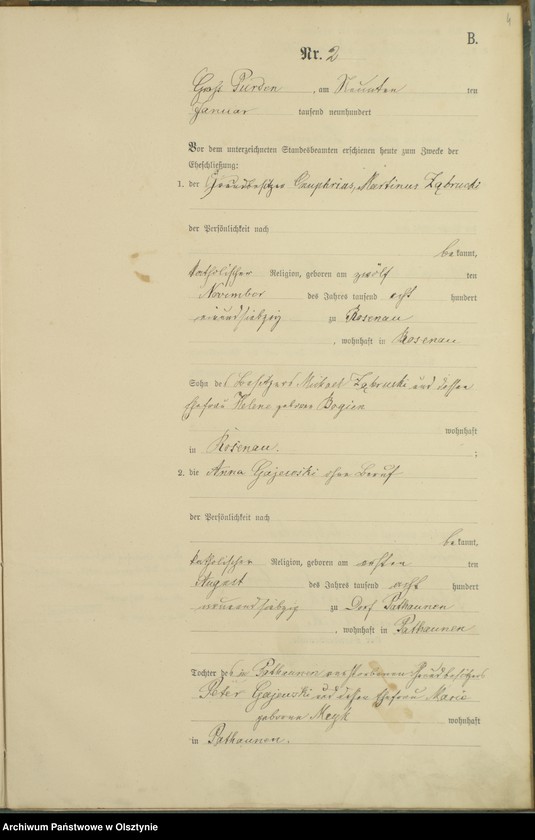 4
B.
Nr. 2
Groß Purden, am Neunten ten
Januar tausend neunhundert
Vor dem unterzeichneten Standesbeamten erschienen heute zum Zwecke der
Eheschließung:
1. der Grundbesitzer Martinus Ząbrucki
der Persönlichkeit nach
bekannt,
katholischer Religion, geboren am zwölf ten
November des Jahres tausend acht hundert
neunundsiebzig zu Rosenau
, wohnhaft in Rosenau
Sohn des Besitzers Michael Ząbrucki und dessen
Ehefrau Helene geborene Bogien
wohnhaft
in Rosenau. ;
2. die Anna Gajewski ohne Beruf
der Persönlichkeit nach
bekannt,
katholischer Religion, geboren am ersten ten
August des Jahres tausend acht hundert
neunundsiebzig zu Dorf Pathaunen
, wohnhaft in Pathaunen
Tochter des in Pathaunen verstorbenen Grundbesitzers
Peter Gajewski und dessen Ehefrau Marie
geborene wohnhaft
in Pathaunen.
Archiwum Państwowe w Olsztynie